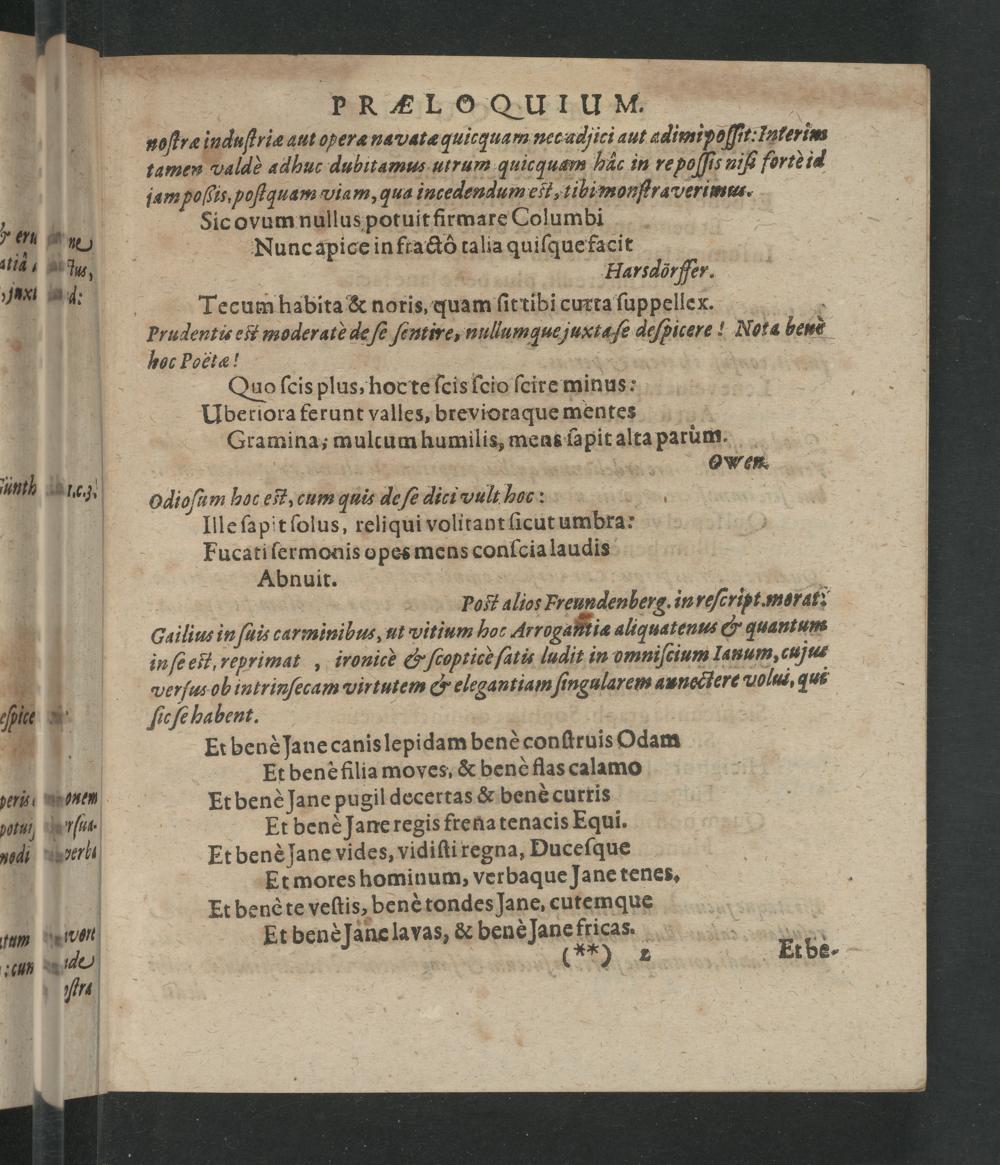 PRÆLOQUIUM.
noſtræ induſtriæ aut operæ navatæ quicquam nec adjici aut adimi poſſit: Interim
tamen valdè adhuc dubitamus utrum quicquam hâc in re poſſis niſi fortè id
jam poßis, poſtquam viam, qua incedendum eſt, tibi monſtraverimus.
Sic ovum nullus potuit firmare Columbi
Nunc apice infractô talia quiſque facit
Harsdörffer.
Tecum habita & noris, quam ſit tibi curta ſuppellex.
Prudentis eſt moderatè de ſe ſentire, nullumque juxta ſe deſpicere! Nota benè
hoc Poëtæ!
Quo ſcis plus, hoc te ſcis ſcio ſcire minus:
Uberiora ferunt valles, brevioraque mentes
Gramina; multum humilis, mens ſapit alta parùm.
Owen.
Odioſum hoc eſt, cum quis de ſe dici vult hoc:
Ille ſapit ſolus, reliqui volitant ſicut umbra:
Fucati ſermonis opes mens conſcia laudis
Abnuit.
Poſt alios Freundenberg. in reſcript. morat:
Gailius in ſuis carminibus, ut vitium hoc Arrogantiæ aliquatenus & quantum
in ſe eſt, reprimat , ironicè & ſcopticè ſatis ludit in omniſcium Ianum, cujus
verſus ob intrinſecam virtutem & elegantiam ſingularem annectere volui, qui
ſic ſe habent.
Et benè Jane canis lepidam benè conſtruis Odam
Et benè filia moves, & benè flas calamo
Et benè Jane pugil decertas & benè curris
Et benè Jane regis frena tenacis Equi.
Et benè Jane vides, vidiſti regna, Duceſque
Et mores hominum, verbaque Jane tenes,
Et benè te veſtis, benè tondes Jane, cutemque
Et benè Jane lavas, & benè Jane fricas.
(**) 2
Et be-